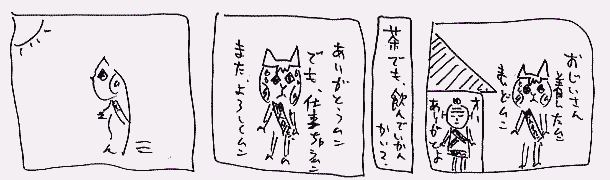 おじいさん
着いたムン
まいどムン
オー
ありがとよ
茶でも、飲んでいかん
かい?
ありがとうムン
でも、仕事
また、よろしくムン